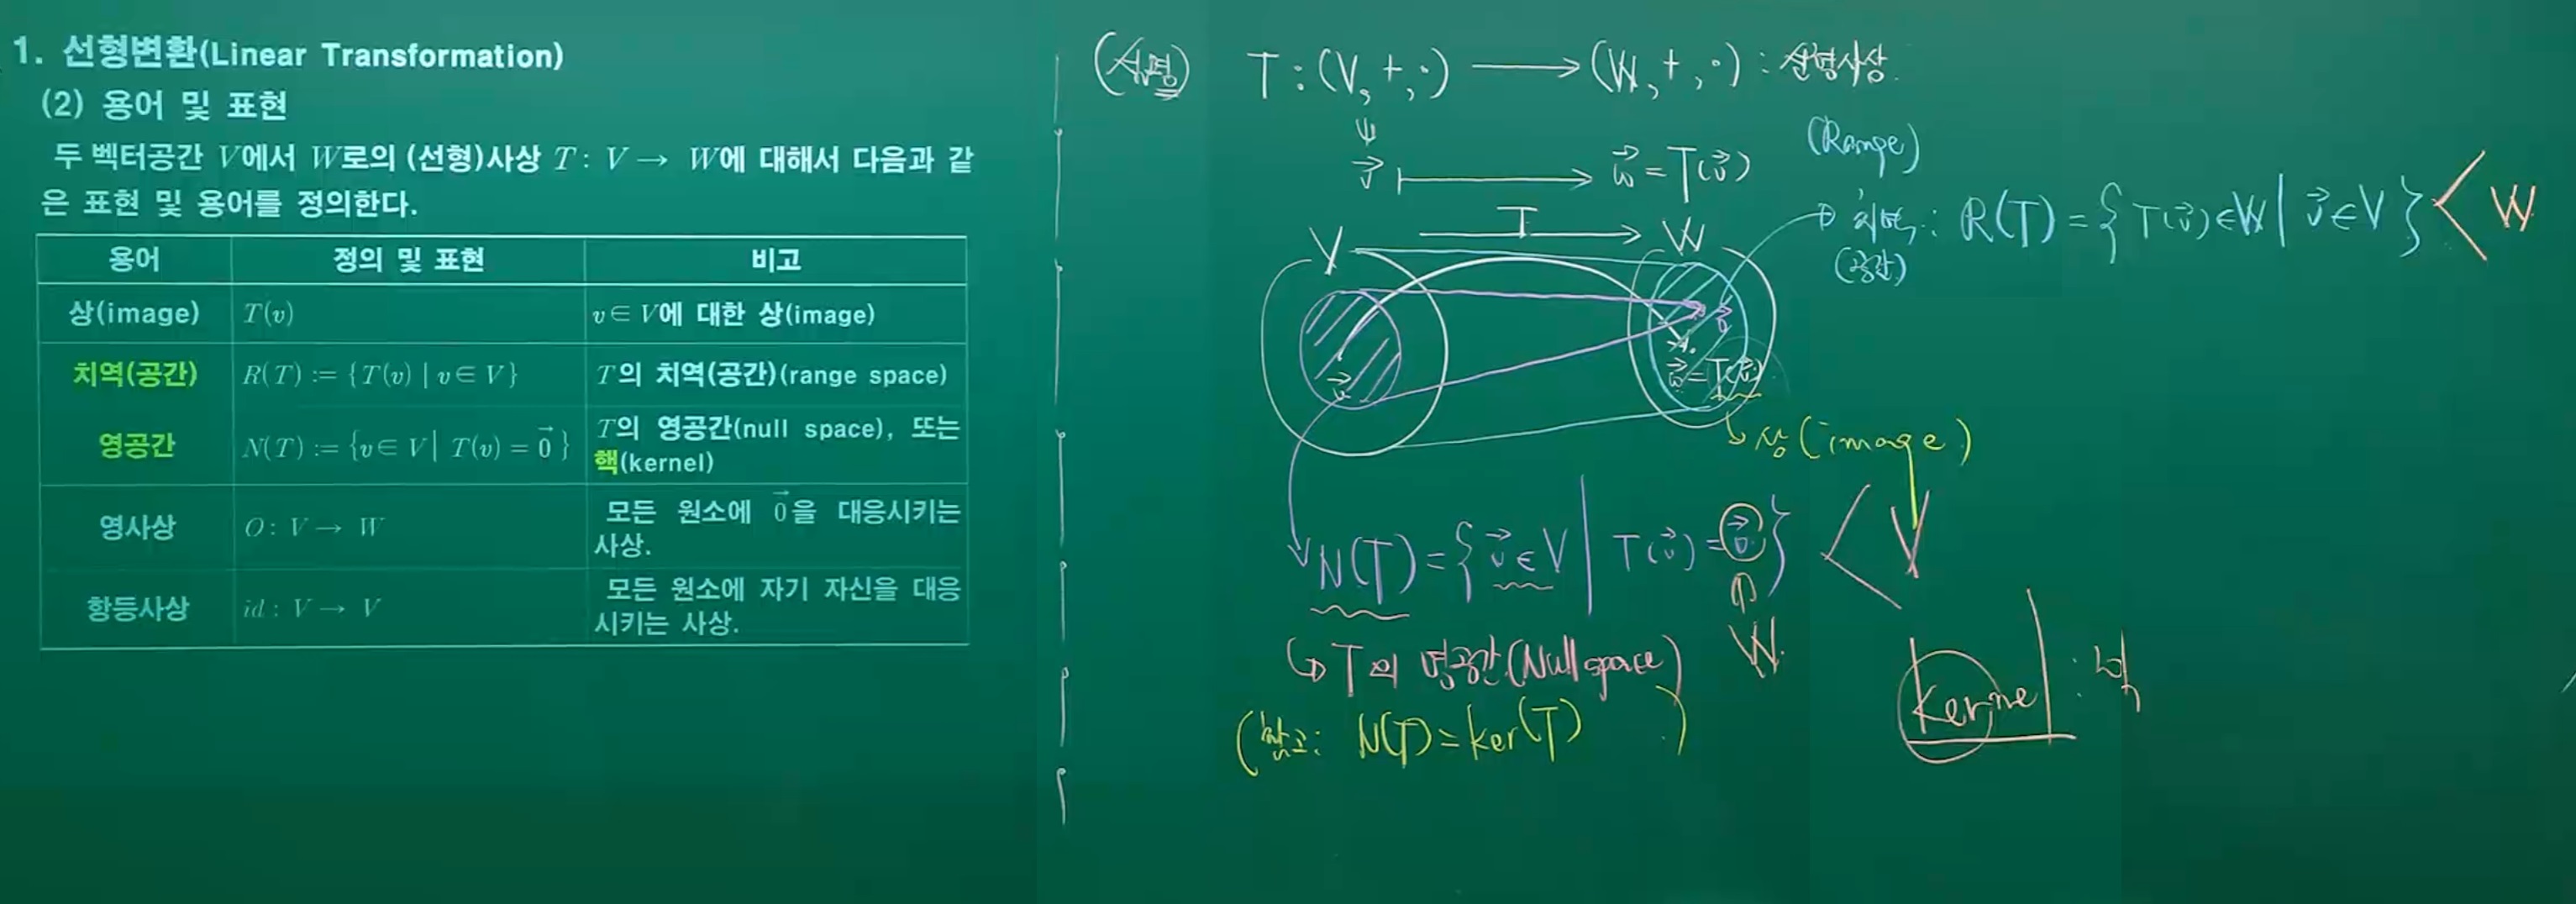 1. 선형변환(Linear Transformation)
(2) 용어 및 표현
두 벡터공간 V에서 W로의 (선형)사상 T : V → W에 대해서 다음과 같
은 표현 및 용어를 정의한다.
용어 정의 및 표현 비고
상(image) T(v) v∈V에 대한 상(image)
치역(공간) R(T) := {T(v) | v∈V} T의 치역(공간)(range space)
영공간 N(T) := {v∈V | T(v) = \vec{0}} T의 영공간(null space), 또는
핵(kernel)
영사상 O : V → W 모든 원소에 \vec{0}을 대응시키는
사상.
항등사상 id : V → V 모든 원소에 자기 자신을 대응
시키는 사상.
(설명) T : (V, +, ·) → (W, +, ·) : 선형사상.
\vec{v} ↦ \vec{w} = T(\vec{v})
(Range)
치역 : R(T) = { T(\vec{v}) ∈ W | \vec{v} ∈ V } < W
(공간)
T
V W
\vec{0}
\vec{v}
\vec{w} = T(\vec{v})
상(image)
N(T) = { \vec{v} ∈ V | T(\vec{v}) = \vec{0} } < V
W
T의 영공간(Null space)
(참고: N(T) = ker(T) )
kernel : 핵